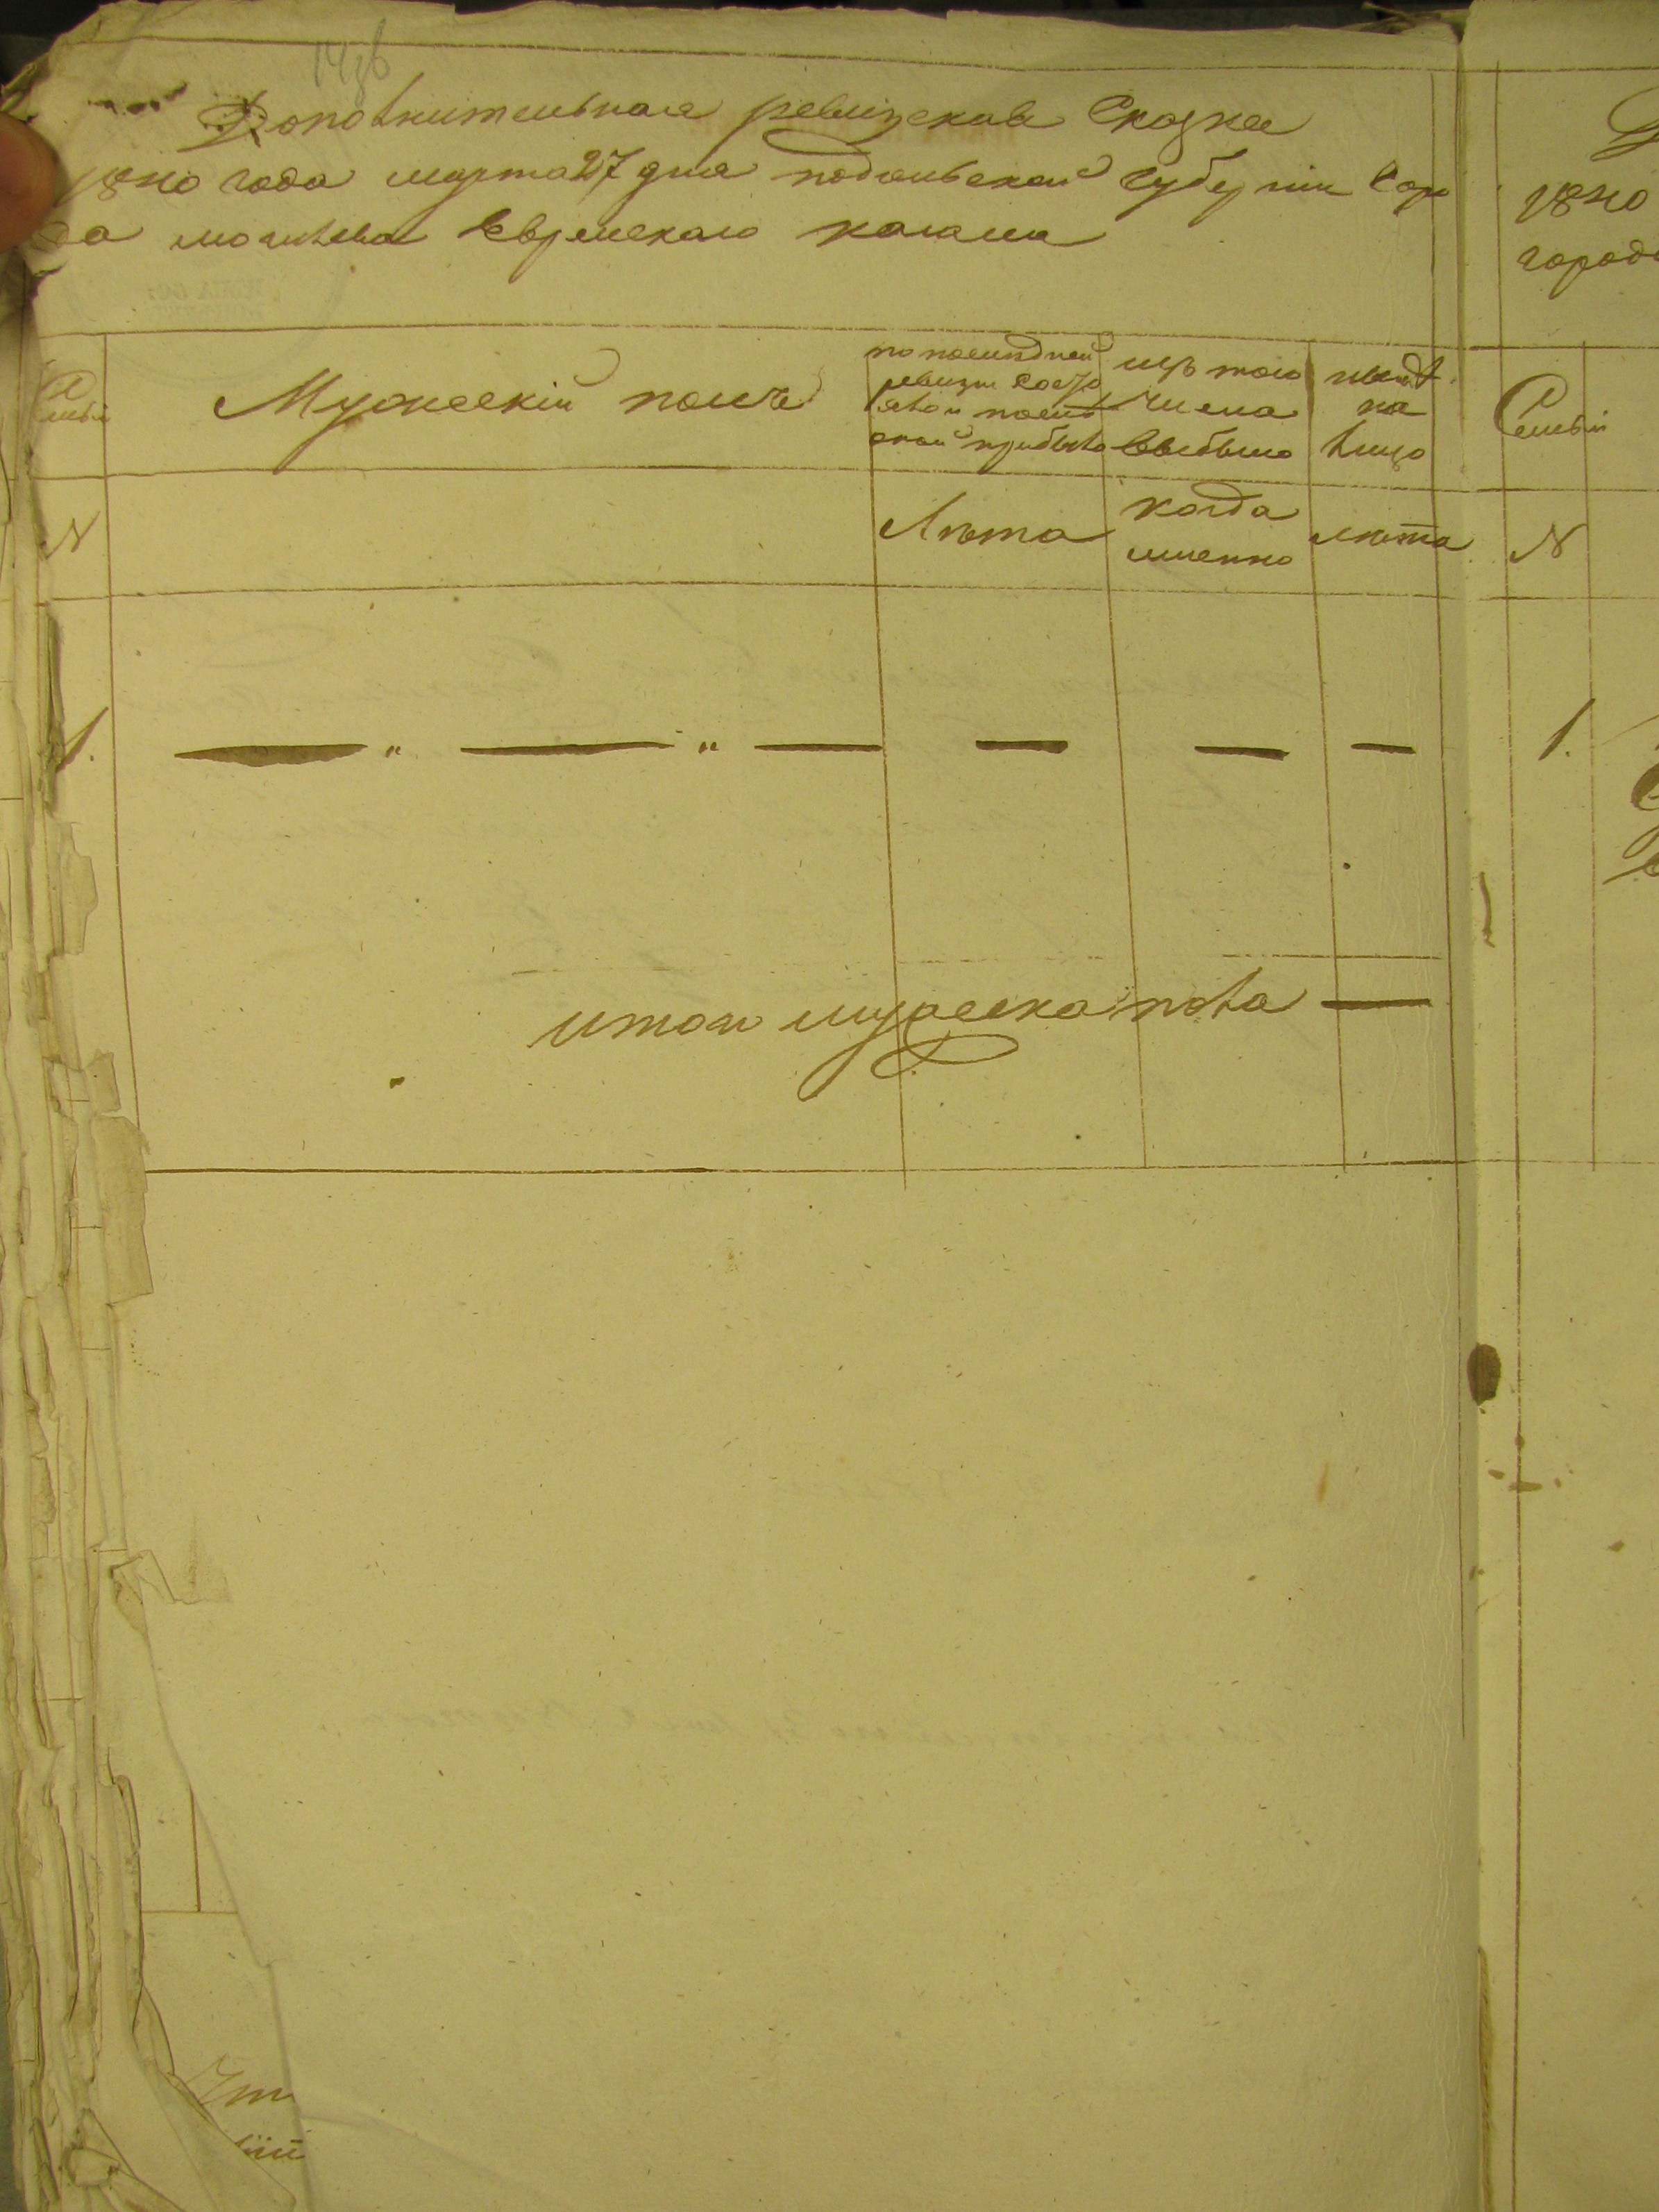 Дополнительная ревизская Сказка
года марта 27 дня подольской губернии Горо
да могилева Еврейскаго кагала
Мужескій полъ
по последней ревизіи состо
яло и после оной прибыло
изъ того числа выбыло
ныне на лицо
N
Лета
когда именно
лета
1.
итого мужеска пола
Семьи
N
1.
город